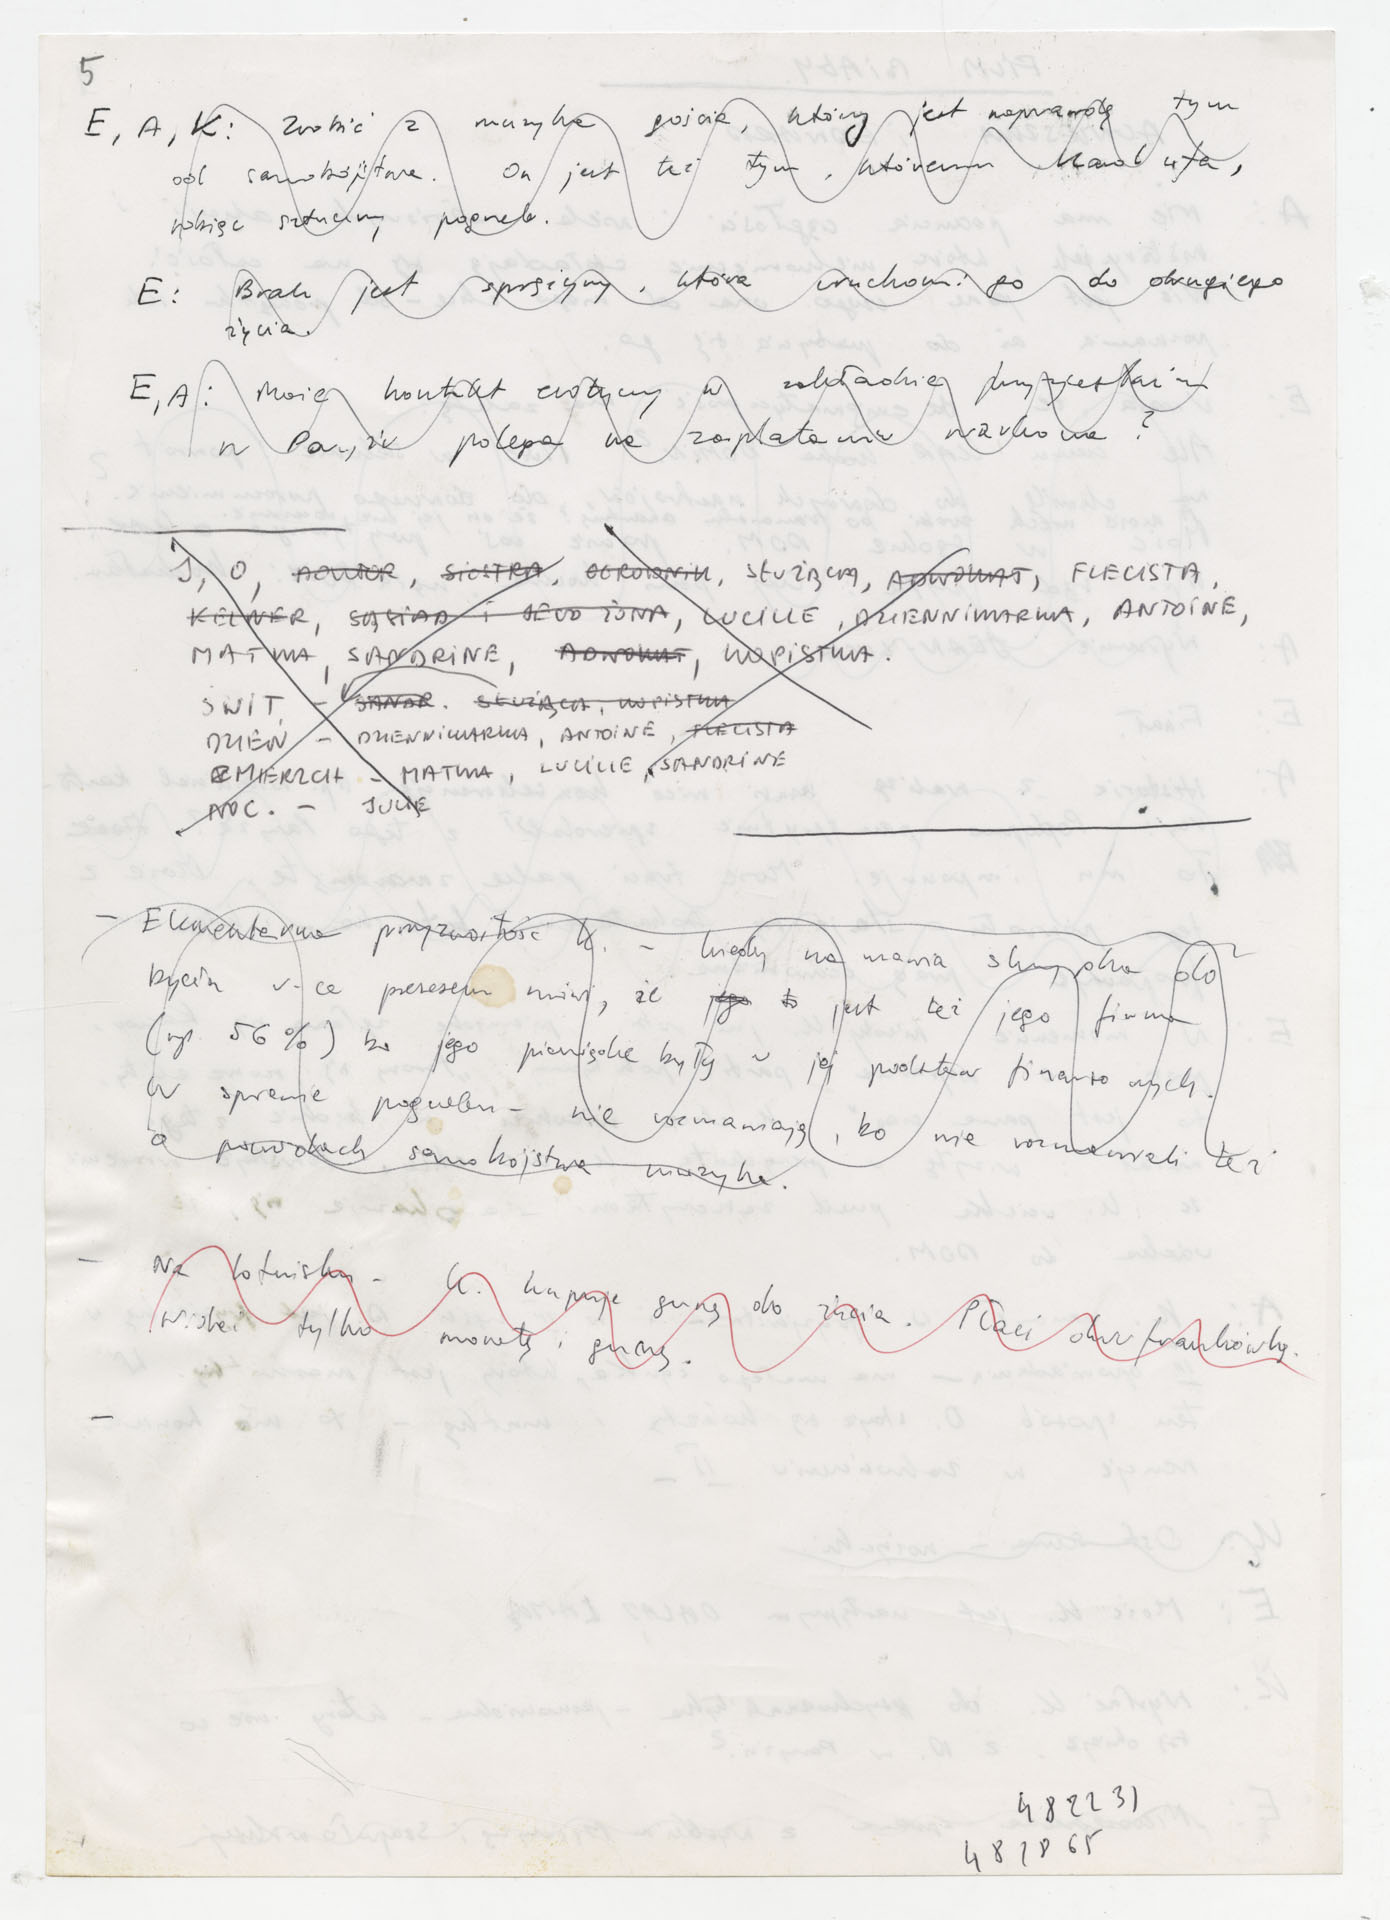 5
E, A, K: Zrobić z muzyka gościa, który jest naprawdę tym
od samobójstwa. On jest też tym, któremu Karol ufa,
robiąc sztuczny pogrzeb.
E: Brak jest sprężyny, która uruchomi go do drugiego
życia.
E, A: Może kontakt erotyczny w zakładzie fryzjerskim
w Paryżu polega na zaplataniu warkocza?
J, O, AOUTER, SIOSTRA, OGRODNIK, SŁUŻĄCA, ADWOKAT, FLECISTA,
KELNER, SĄSIAD I JEGO ŻONA, LUCILLE, DZIENNIKARKA, ANTOINE,
MATKA, SANDRINE, ADWOKAT, KOPISTKA.
ŚWIT – SANDR. SŁUŻĄCA, KOPISTKA
DZIEŃ – DZIENNIKARKA, ANTOINE, FLECISTA
ZMIERZCH – MATKA, LUCILLE, SANDRINE
NOC. – JULIE
– Elementarna przyzwoitość K. – kiedy namawia skrzypka do
bycia v-ce prezesem mówi, że jego to jest też jego firma
(np. 56%) bo jego pieniądze były u jej podstaw finansowych.
W sprawie pogrzebu – nie rozmawiają, bo nie rozmawiali też
o powodach samobójstwa muzyka.
– Na lotnisku – K. kupuje gumę do żucia. Płaci dwufrankówką.
Widać tylko monetę i gumę.
–
482231
487865